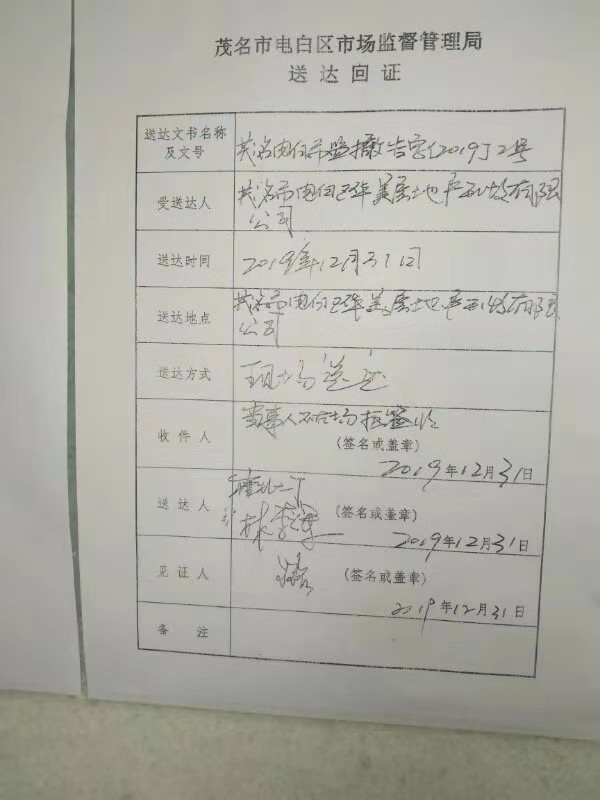 茂名市电白区市场监督管理局
送达回证
送达文书名称
及文号
茂名电白市监撤告字[2019]2号
受送达人
茂名市电白区华美房地产开发有限
公司
送达时间
2019年12月31日
送达地点
茂名市电白区华美房地产开发有限
公司
送达方式
现场送达
收件人
当事人不在场拒签收
(签名或盖章)
2019年12月31日
送达人
(签名或盖章)
2019年12月31日
见证人
(签名或盖章)
2019年12月31日
备 注